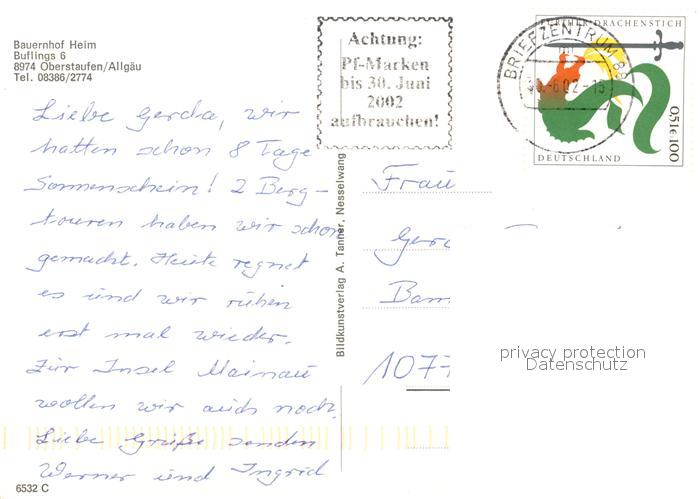 Bauernhof Heim
Buflings 6
8974 Oberstaufen/Allgäu
Tel. 08386/2774
Achtung:
Pf-Marken
bis 30. Juni
2002
aufbrauchen!
BRIEFZENTRUM 88
FURTHER DRACHENSTICH
0,51€ 100
DEUTSCHLAND
Liebe Gerda, wir
hatten schon 8 Tage
Sonnenschein! 2 Berg-
touren haben wir schon
gemacht. Heute regnet
es und wir ruhen
erst mal wieder.
Zur Insel Mainau
wollen wir auch noch.
Liebe Grüße senden
Werner und Ingrid
6532 C
Bildkunstverlag A. Tanner, Nesselwang
Frau
Gerd
Bam
1077
privacy protection
Datenschutz